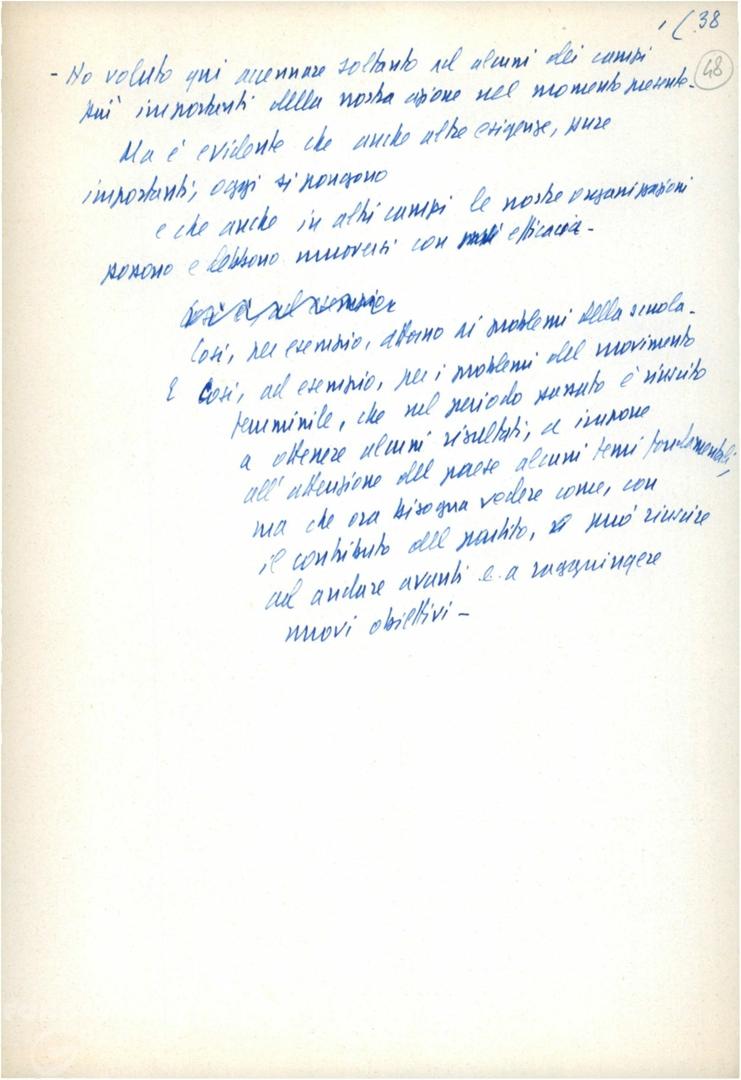 1( 38
48
- Ho voluto qui accennare soltanto ad alcuni dei campi
più importanti della nostra azione nel momento presente -
Ma è evidente che anche altre esigenze, pure
importanti, oggi si pongono
e che anche in altri campi le nostre organizzazioni
possono e debbono muoversi con più efficacia -
Così è, ad esempio
Così, per esempio, attorno ai problemi della scuola -
E Così, ad esempio, per i problemi del movimento
femminile, che nel periodo passato è riuscito
a ottenere alcuni risultati, a imporre
all'attenzione del paese alcuni temi fondamentali,
ma che ora bisogna vedere come, con
il contributo del partito, può riuscire
ad andare avanti e a raggiungere
nuovi obiettivi -